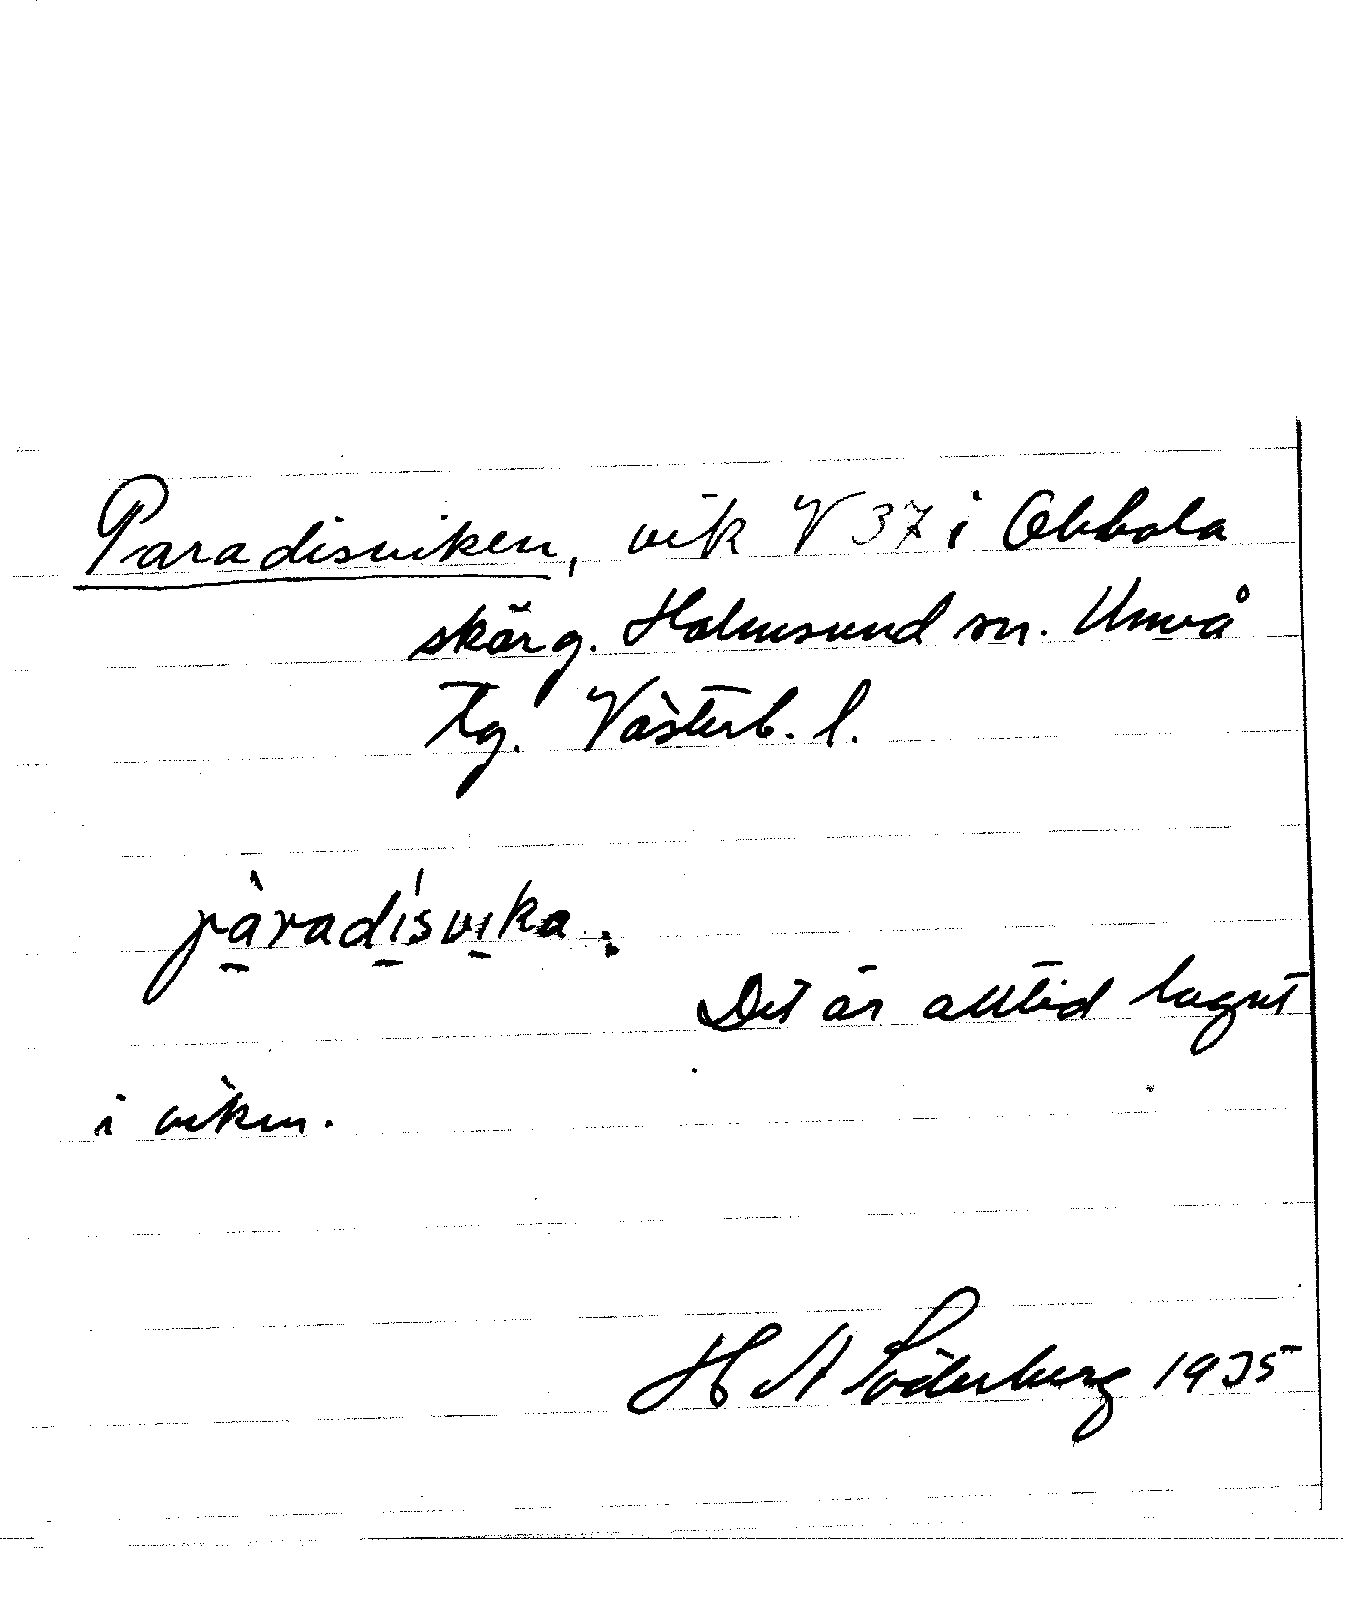 Paradisviken, vik V 37 i Obbola
skärg. Holmsund sn. Umeå
tg. Västerb. l.
pàradísvika.:
Det är alltid lugnt
i viken.
H A Söderberg 1935